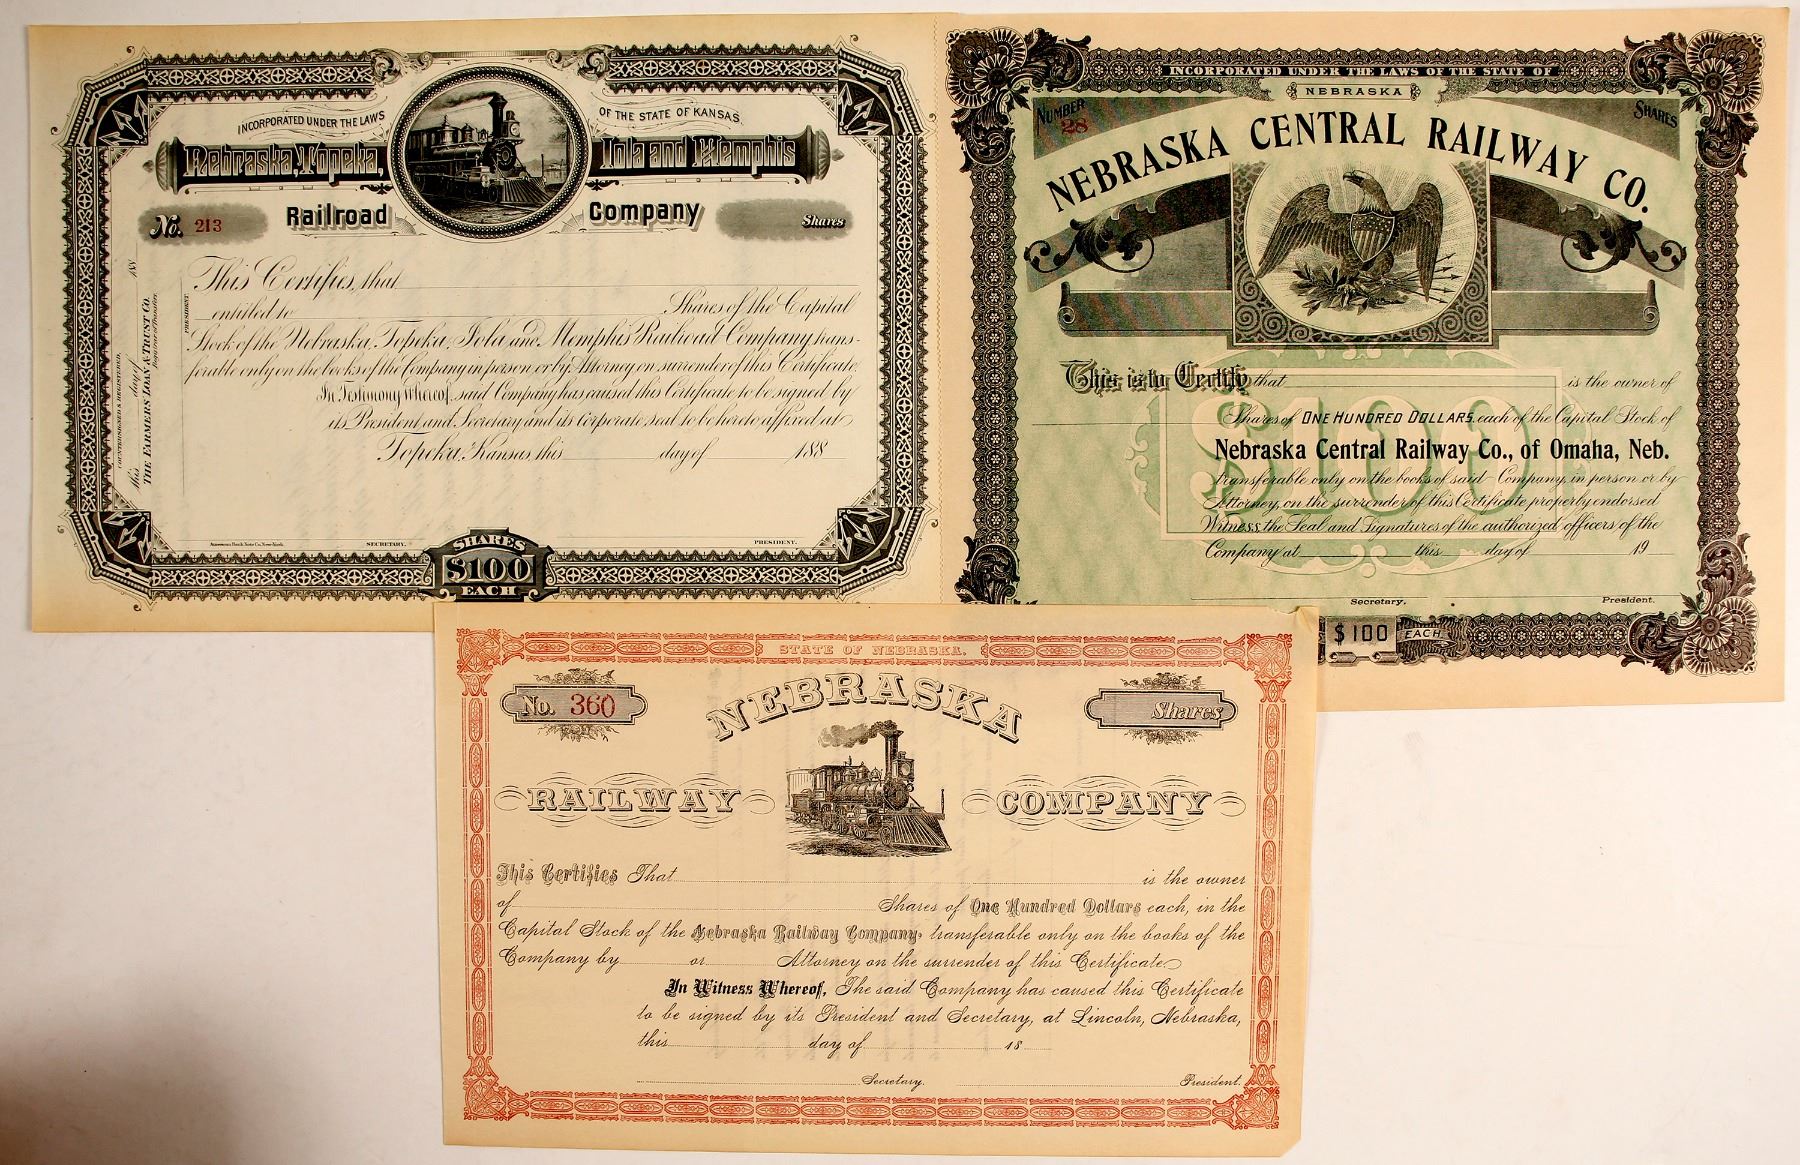 INCORPORATED UNDER THE LAWS OF THE STATE OF KANSAS
Nebraska, Topeka, Iola and Memphis
Railroad Company
No. 213 Shares
This Certifies, that
entitled to Shares of the Capital
Stock of the Nebraska, Topeka, Iola and Memphis Railroad Company trans-
ferable only on the books of the Company in person or by Attorney on surrender of this Certificate.
In Testimony Whereof, said Company has caused this Certificate to be signed by
its President and Secretary and its corporate seal to be hereto affixed at
Topeka, Kansas, this day of 188
PRESIDENT.
COUNTERSIGNED & REGISTERED,
this day of 188
THE FARMERS LOAN & TRUST CO.
Registrar of Transfers.
American Bank Note Co. New York.
SECRETARY. PRESIDENT.
SHARES
$100
EACH
INCORPORATED UNDER THE LAWS OF THE STATE OF
NEBRASKA
NUMBER SHARES
28
NEBRASKA CENTRAL RAILWAY CO.
This is to Certify that is the owner of
Shares of ONE HUNDRED DOLLARS each of the Capital Stock of
Nebraska Central Railway Co., of Omaha, Neb.
transferable only on the books of said Company, in person or by
Attorney, on the surrender of this Certificate properly endorsed
Witness the Seal and Signatures of the authorized officers of the
Company at this day of 19
$100
Secretary. President.
$100 EACH
STATE OF NEBRASKA.
No. 360 Shares
NEBRASKA
RAILWAY COMPANY
This Certifies That is the owner
of Shares of One Hundred Dollars each, in the
Capital Stock of the Nebraska Railway Company, transferable only on the books of the
Company by or Attorney on the surrender of this Certificate
In Witness Whereof, The said Company has caused this Certificate
to be signed by its President and Secretary, at Lincoln, Nebraska,
this day of 18
Secretary. President.